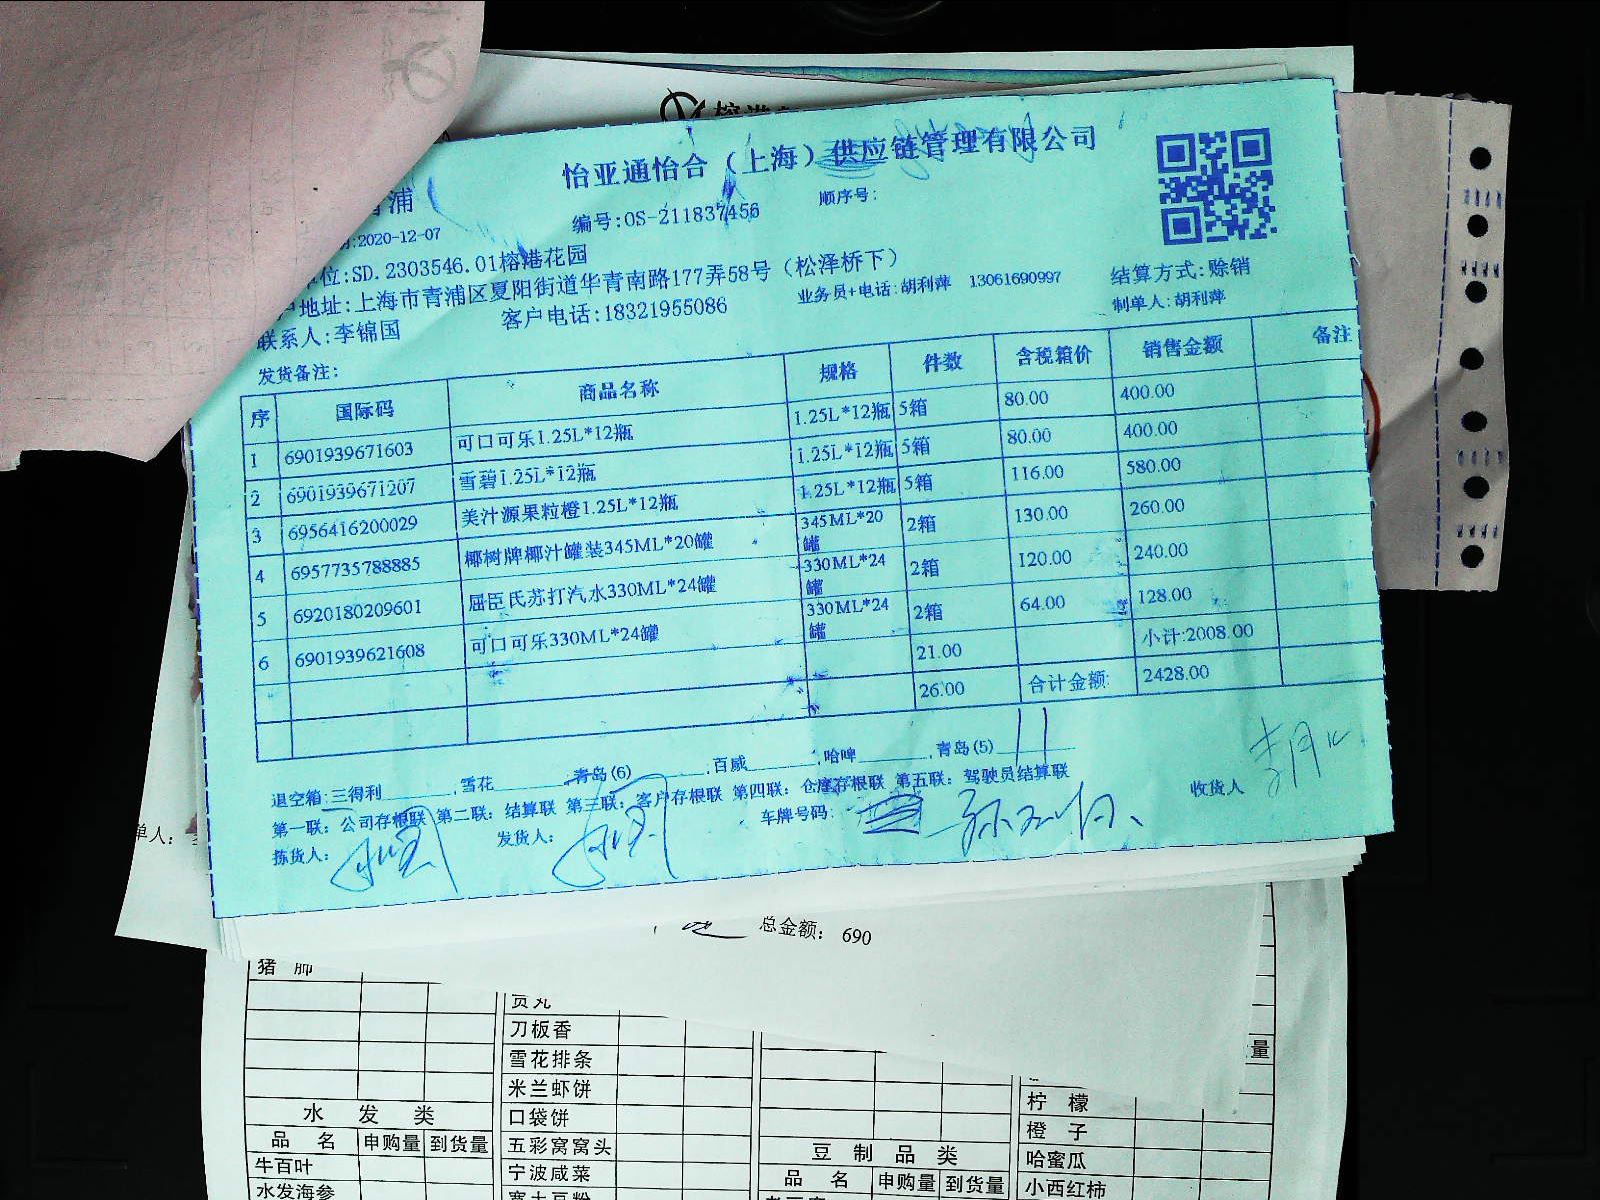 怡亚通怡合（上海）供应链管理有限公司
青浦
编号:OS-211837456
顺序号:
期:2020-12-07
位:SD.2303546.01榕港花园
户地址:上海市青浦区夏阳街道华青南路177弄58号（松泽桥下）
业务员+电话:胡利萍 13061690997
结算方式:赊销
联系人:李锦国
客户电话:18321955086
制单人:胡利萍
发货备注:
序 国际码 商品名称 规格 件数 含税箱价 销售金额 备注
1 6901939671603 可口可乐1.25L*12瓶 1.25L*12瓶 5箱 80.00 400.00
2 6901939671207 雪碧1.25L*12瓶 1.25L*12瓶 5箱 80.00 400.00
3 6956416200029 美汁源果粒橙1.25L*12瓶 1.25L*12瓶 5箱 116.00 580.00
4 6957735788885 椰树牌椰汁罐装345ML*20罐 345ML*20罐 2箱 130.00 260.00
5 6920180209601 屈臣氏苏打汽水330ML*24罐 330ML*24罐 2箱 120.00 240.00
6 6901939621608 可口可乐330ML*24罐 330ML*24罐 2箱 64.00 128.00
21.00 小计:2008.00
26.00 合计金额: 2428.00
退空箱:三得利 ,雪花 ,青岛(6) ,百威 ,哈啤 ,青岛(5) 11
第一联：公司存根联 第二联：结算联 第三联：客户存根联 第四联：仓库存根联 第五联：驾驶员结算联
拣货人: 发货人: 车牌号码: 收货人
单人:
总金额：690
猪 肺
贡丸
刀板香
雪花排条
米兰虾饼
口袋饼
五彩窝窝头
宁波咸菜
水 发 类
品 名 申购量 到货量
牛百叶
水发海参
豆 制 品 类
品 名 申购量 到货量
量
柠 檬
橙 子
哈蜜瓜
小西红柿